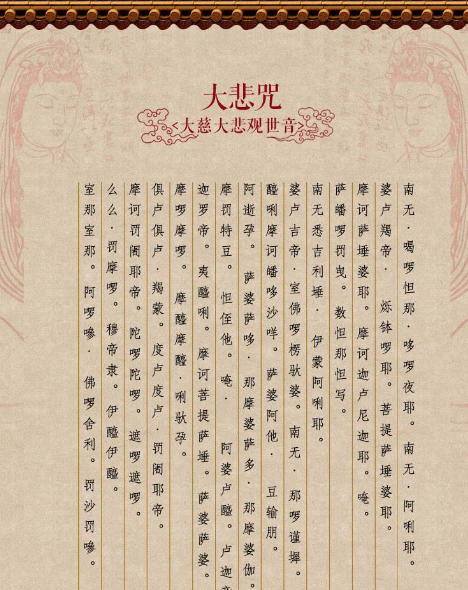 大悲咒
<大慈大悲观世音>
南无·喝啰怛那·哆啰夜耶。南无·阿唎耶。
婆卢羯帝·烁钵啰耶。菩提萨埵婆耶。
摩诃萨埵婆耶。摩诃迦卢尼迦耶。唵。
萨皤啰罚曳。数怛那怛写。
南无悉吉利埵·伊蒙阿唎耶。
婆卢吉帝·室佛啰楞驮婆。南无·那啰谨墀。
醯唎摩诃皤哆沙咩。萨婆阿他·豆输朋。
阿逝孕。萨婆萨哆·那摩婆萨多·那摩婆伽。
摩罚特豆。怛侄他。唵·阿婆卢醯。卢迦
迦罗帝。夷醯唎。摩诃菩提萨埵。萨婆萨婆。
摩啰摩啰。摩醯摩醯·唎驮孕。
俱卢俱卢·羯蒙。度卢度卢·罚阇耶帝。
摩诃罚阇耶帝。陀啰陀啰。遮啰遮啰。
么么·罚摩啰。穆帝隶。伊醯伊醯。
室那室那。阿啰嘇·佛啰舍利。罚沙罚嘇。